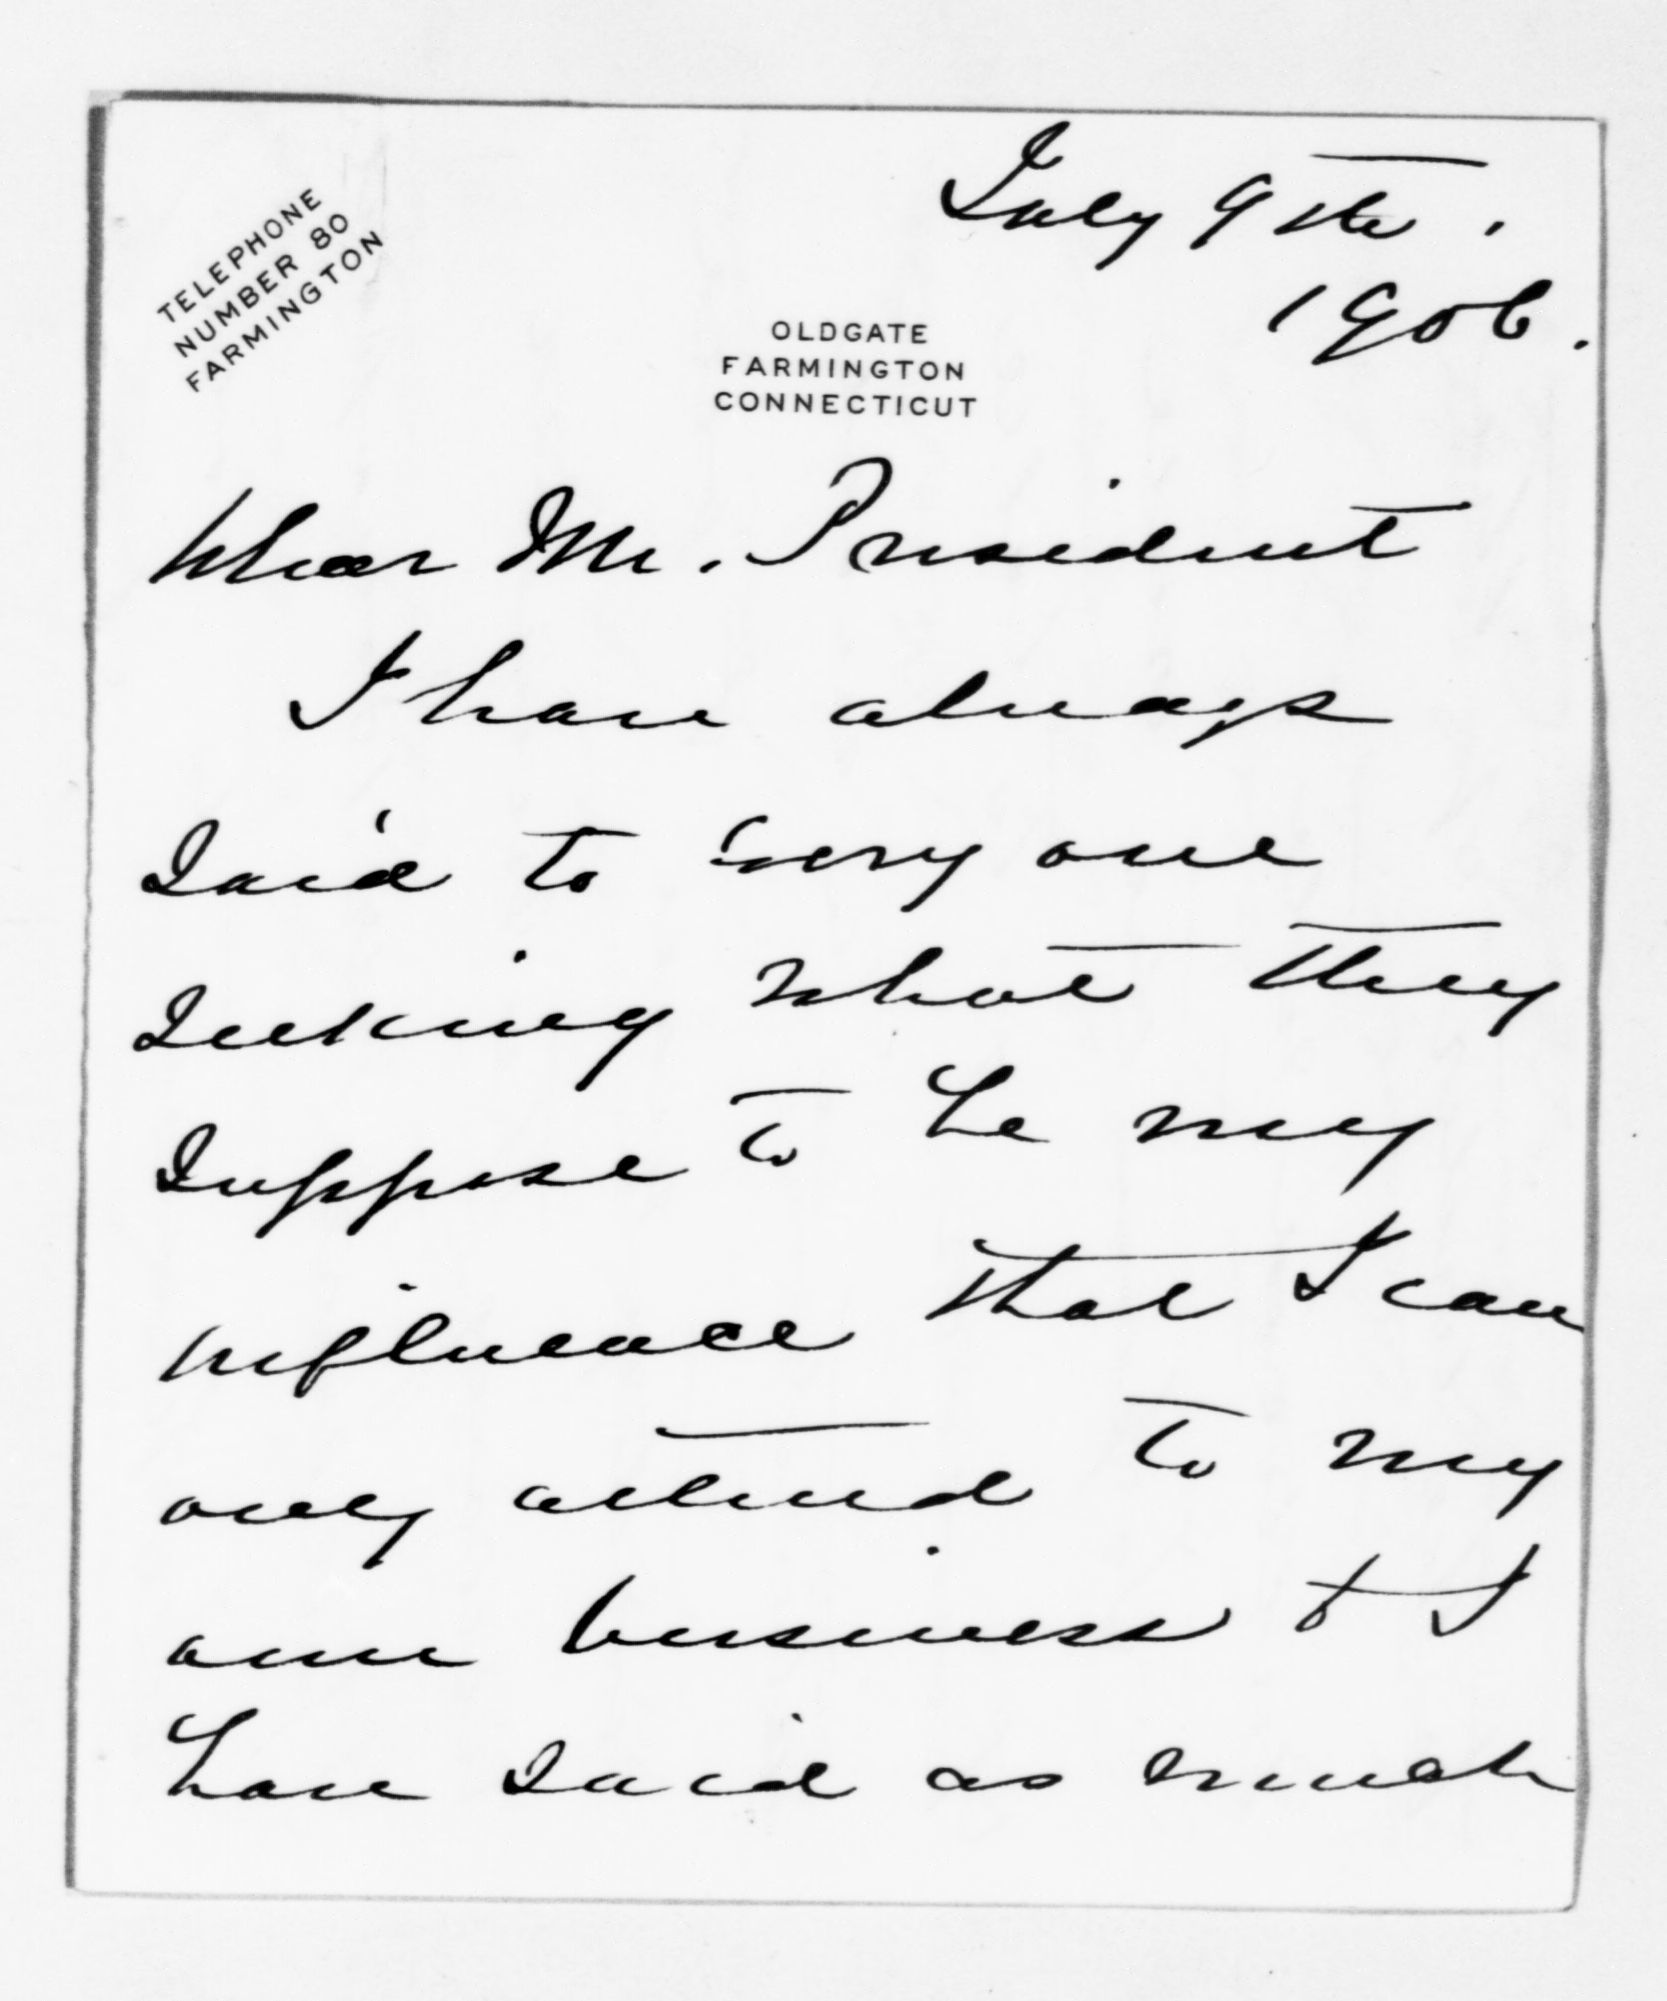 TELEPHONE
NUMBER 80
FARMINGTON
July 9th.
1906.
OLDGATE
FARMINGTON
CONNECTICUT
Dear Mr. President
I have always
said to every one
seeking what they
suppose to be my
influence that I can
only attend to my
own business & I
have said as much